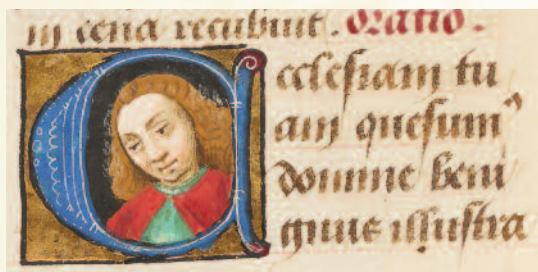 in cena recubuit. Oratio.
Ecclesiam tu
am quesumꝰ
domine beni
gnus illustra